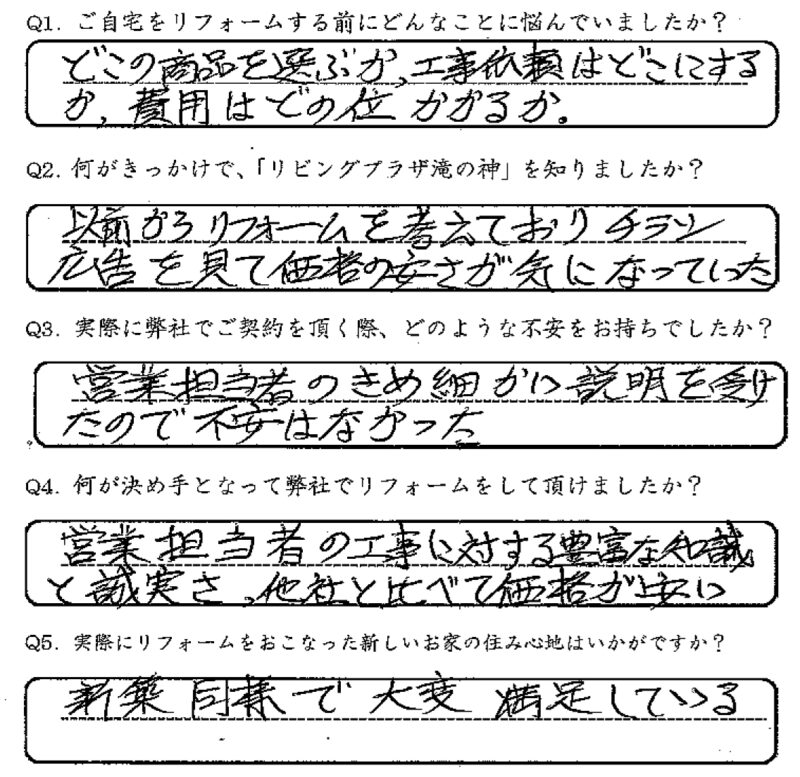 Q1. ご自宅をリフォームする前にどんなことに悩んでいましたか？
どこの商品を選ぶか、工事依頼はどこにする
か、費用はどの位かかるか。
Q2. 何がきっかけで、「リビングプラザ滝の神」を知りましたか？
以前からリフォームを考えており チラシ
広告を見て価格の安さが気になっていった
Q3. 実際に弊社でご契約を頂く際、どのような不安をお持ちでしたか？
営業担当者のきめ細かい説明を受け
たので不安はなかった
Q4. 何が決め手となって弊社でリフォームをして頂けましたか？
営業担当者の工事に対する豊富な知識
と誠実さ、他社と比べて価格が安い
Q5. 実際にリフォームをおこなった新しいお家の住み心地はいかがですか？
新築同様で大変満足している